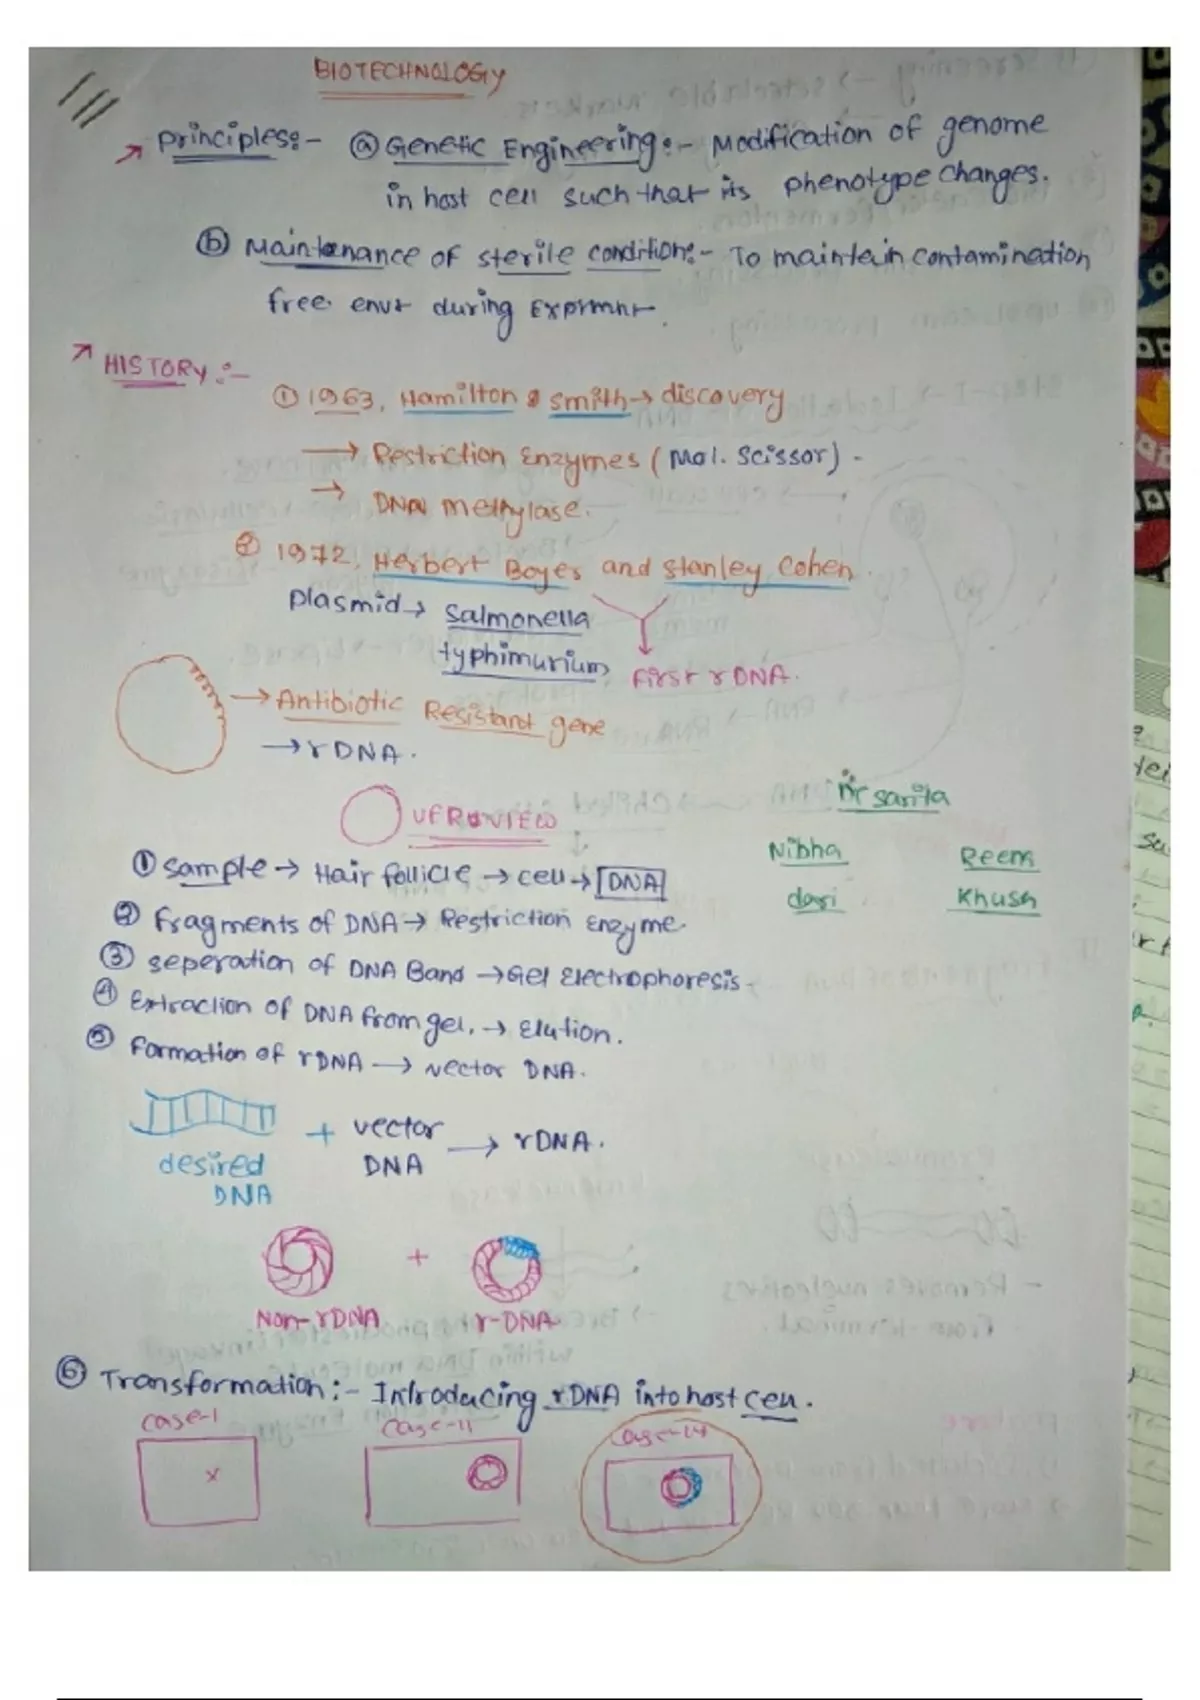 BIOTECHNOLOGY
Principles:- ⓐ Genetic Engineering:- Modification of genome
in host cell such that its phenotype changes.
ⓑ Maintenance of sterile condition:- To maintain contamination
free envt during Exprmnt.
HISTORY:-
① 1963, Hamilton & Smith → discovery
→ Restriction Enzymes (Mol. Scissor) -
→ DNA methylase.
② 1972, Herbert Boyer and Stanley Cohen
Plasmid → Salmonella
typhimurium, First rDNA.
→ Antibiotic Resistant gene
→ rDNA.
OVERVIEW
Dr Sarita
Nibha Reem
Khush
① Sample → Hair follicle → cell → DNA
② Fragments of DNA → Restriction Enzyme.
③ seperation of DNA Band → Gel Electrophoresis.
④ Extraction of DNA from gel. → Elution.
⑤ Formation of rDNA → vector DNA.
desired DNA + vector DNA → rDNA.
+
Non-rDNA r-DNA
⑥ Transformation:- Introducing rDNA into host cell.
Case-I Case-II
x